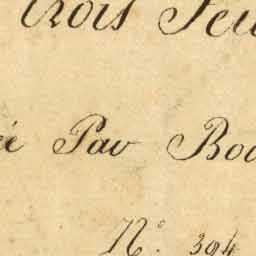 trois Feu
ée Par Boc
N.° 394